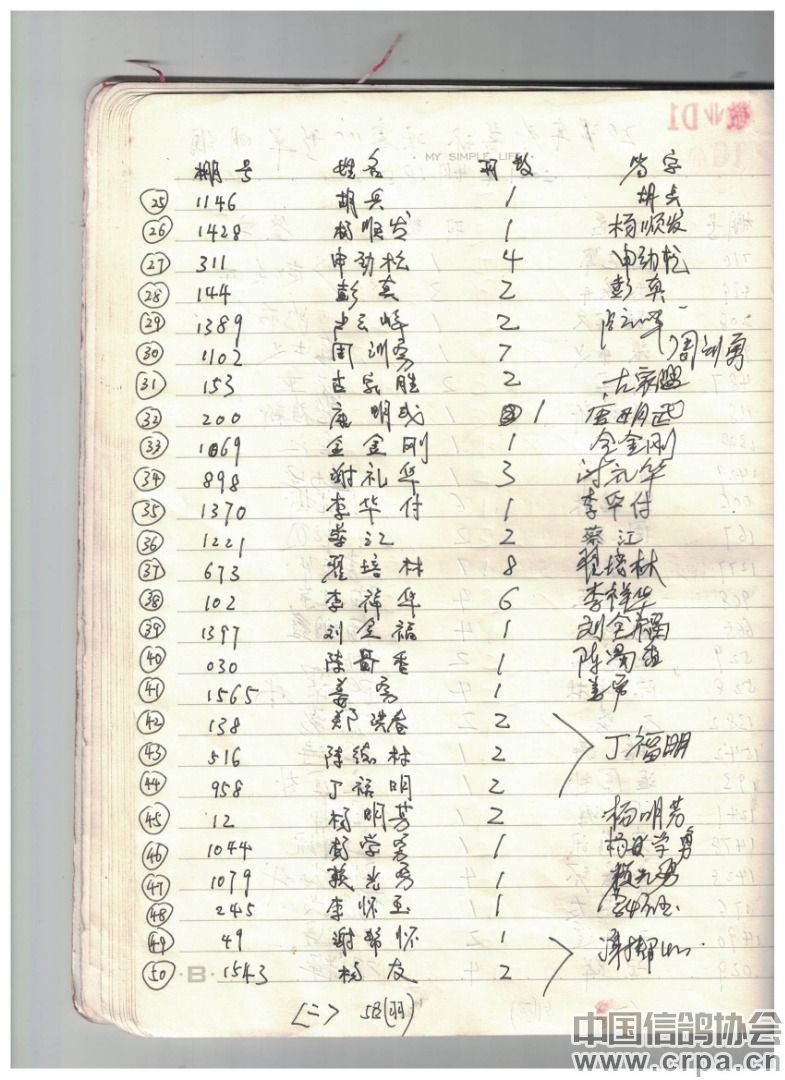 MY SIMPLE LIFE
棚号 姓名 羽数 签字
25 1146 胡兵 1 胡兵
26 1428 杨顺发 1 杨顺发
27 311 申劲松 4 申劲松
28 144 彭真 2 彭真
29 1389 卢云峰 2
30 1102 周训勇 7 周训勇
31 153 古家胜 2 古家胜
32 200 唐明武 1 唐明武
33 1069 全金刚 1 全金刚
34 898 谢礼华 3 谢礼华
35 1370 李华付 1 李华付
36 1221 蔡江 2 蔡江
37 673 翟培林 8 翟培林
38 102 李祥华 6 李祥华
39 1397 刘全福 1 刘全福
40 030 陈 1 陈
41 1565 姜勇 1 姜勇
42 138 郑洪春 2
43 516 陈德村 2 丁福明
44 958 丁福明 2
45 12 杨明芳 2 杨明芳
46 1044 彭学勇 1 学勇
47 1079 赖光勇 1 赖光勇
48 245 李怀玉 1
49 49 谢帮怀 2 1
50 B 1543 杨友 2
(二) 58(羽)
中国信鸽协会
www.crpa.cn